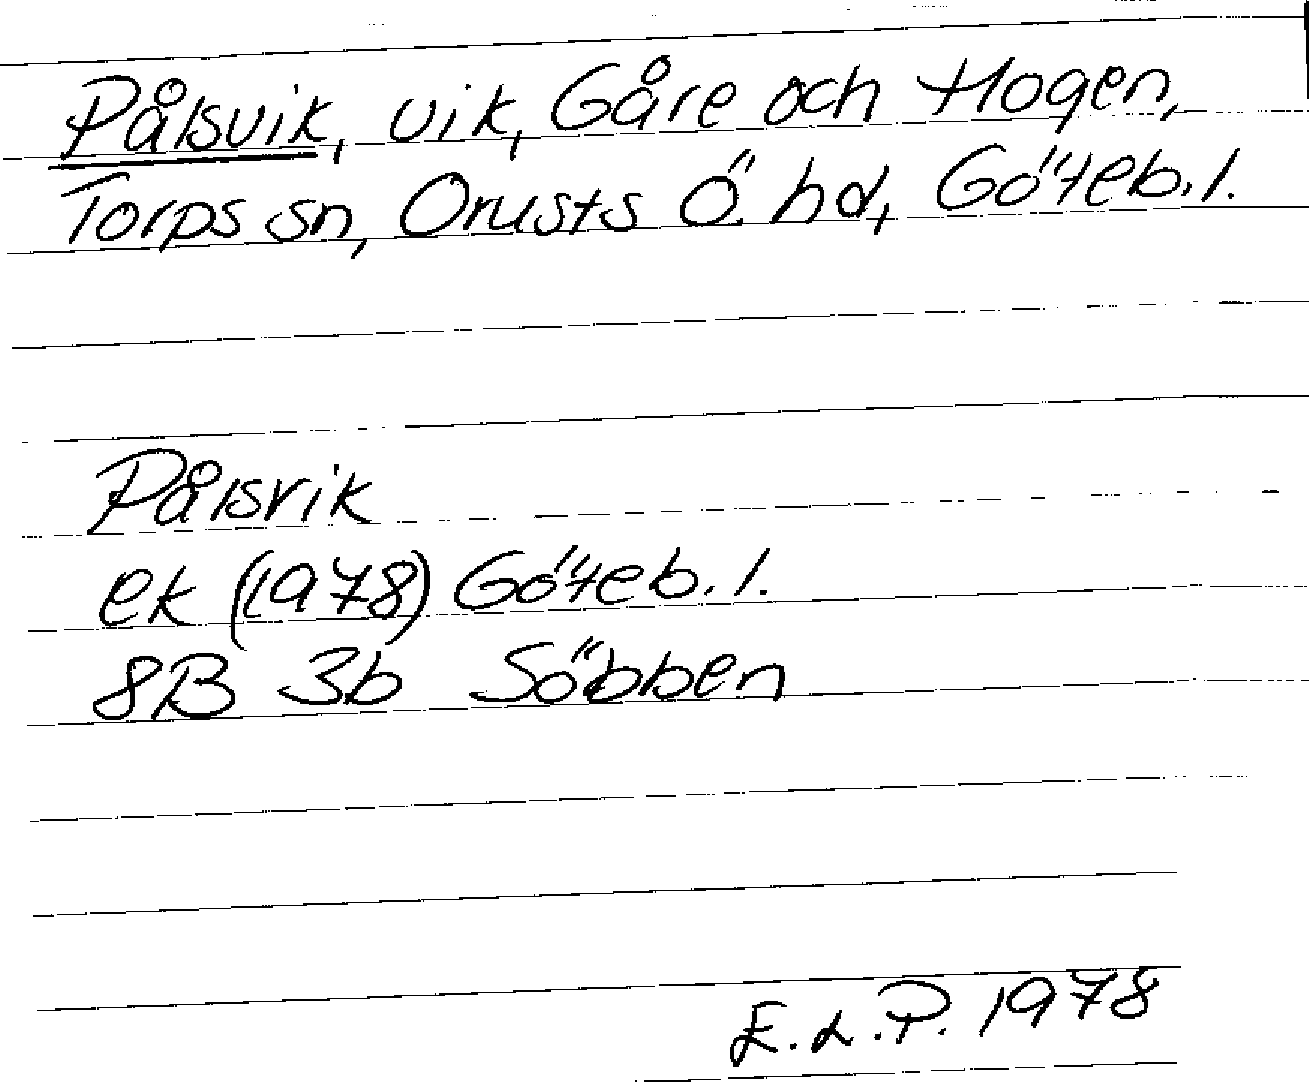 Pålsvik, vik, Gåre och Hogen,
Torps sn, Orusts Ö. hd, Göteb. l.
Pålsvik
ek (1978) Göteb. l.
8B 3b Söbben
E. L. P. 1978